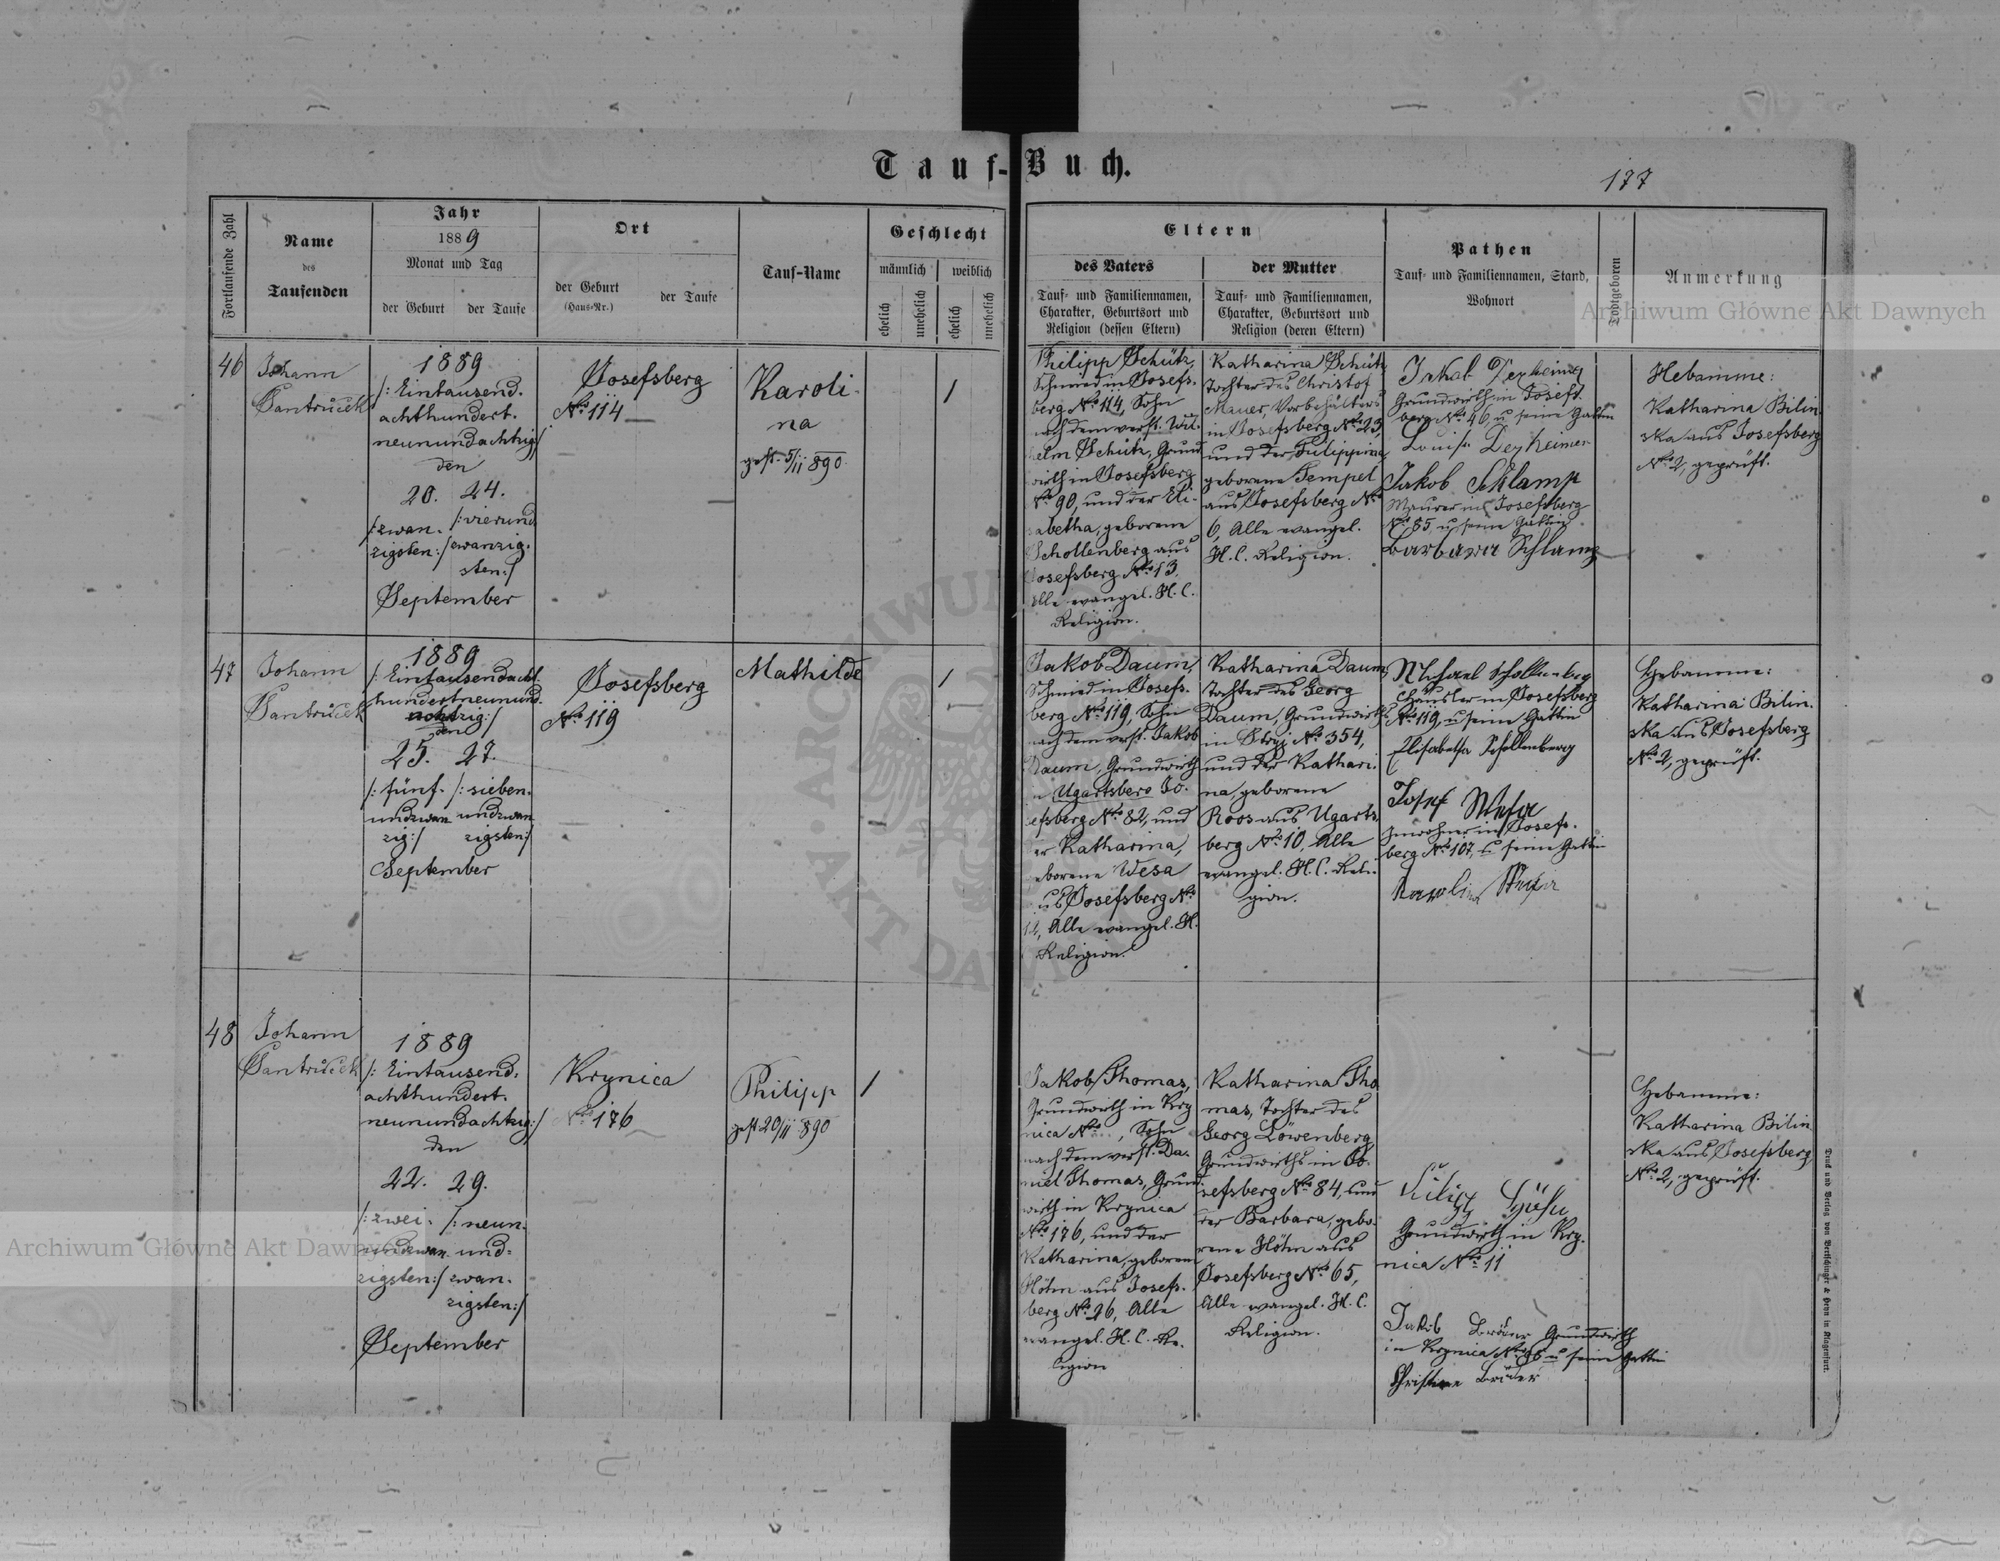 Tauf-Buch.
177
Fortlaufende Zahl
Name
des
Taufenden
Jahr
1889
Monat und Tag
der Geburt
der Taufe
Ort
der Geburt
(Haus-Nr.)
der Taufe
Tauf-Name
Geschlecht
männlich
weiblich
ehelich
unehelich
ehelich
unehelich
Eltern
des Vaters
Tauf- und Familiennamen,
Charakter, Geburtsort und
Religion (dessen Eltern)
der Mutter
Tauf- und Familiennamen,
Charakter, Geburtsort und
Religion (deren Eltern)
Pathen
Tauf- und Familiennamen, Stand,
Wohnort
Todtgeboren
Anmerkung
Archiwum Główne Akt Dawnych
46
Johann
Santrůček
1889
/: Eintausend.
achthundert.
neunundachtzig/
den
20. 24.
/:zwan- /:vierund
zigsten:/ zwanzig.
sten:/
September
Josefsberg
No 114
Karoli-
na
gest. 5/11 890.
/
Philipp Schütz,
Schmied in Josefs-
berg No 114, Sohn
nach dem verst. Wil-
helm Schütz, Grund
wirth in Josefsberg
No 90, und der Eli-
sabetha, geborene
Schollenberg aus
Josefsberg No 13,
Alle evangel. H. C.
Religion.
Katharina Schütz
Tochter des Christof
Mauer, Vorbehälters
in Josefsberg No 23,
und der Filippina
geborene Tempel
aus Josefsberg No
6, Alle evangel.
H. C. Religion.
Jakob Dexheimer
Grundwirth in Josefs-
berg No 46, u seine Gattin
Louise Dexheimer
Jakob Schlamp
Maurer in Josefsberg
No 85 u seine Gattin
Barbara Schlamp
Hebamme:
Katharina Bilin
ska aus Josefsberg
No 2, geprüft.
47
Johann
Santrůček
1889
/: Eintausendacht
hundertneunund.
achtzig:/
den
25. 27.
/: fünf- /: sieben.
undzwan undzwan
zig:/ zigsten:/
September
Josefsberg
No 119
Mathilde
/
Jakob Daum,
Schmied in Josefs-
berg No 119, Sohn
nach dem verst. Jakob
Daum, Grundwirth
in Ugartsberg Jo-
sefsberg No 82, und
der Katharina,
geborene Wesa
aus Josefsberg No
12, Alle evangel. H.
Religion.
Katharina Daum
Tochter des Georg
Daum, Grundwirths
in Stryj No 354,
und der Kathari-
na, geborene
Roos aus Ugarts-
berg No 10, Alle
evangel. H. C. Reli-
gion.
Michael Schollenberg
Häusler in Josefsberg
No 119, u seine Gattin
Elisabetha Schollenberg
Josef
Inwohner in Josefs-
berg No 107, u seine Gattin
Karolina
Hebamme:
Katharina Bilin-
ska aus Josefsberg
No 2, geprüft.
48
Johann
Santrůček
1889
/: Eintausend.
achthundert.
neunundachtzig:/
den
22. 29.
/: zwei- /: neun-
undzwan- und-
zigsten:/ zwan-
zigsten:/
September
Krynica
No 176
Philipp
gest 20/11 890
/
Jakob Thomas,
Grundwirth in Kry
nica No , Sohn
nach dem verst. Da-
niel Thomas, Grund
wirth in Krynica
No 176, und der
Katharina, geborene
Höhn aus Josefs-
berg No 26, Alle
evangel. H. C. Re-
ligion
Katharina Tho
mas, Tochter des
Georg Löwenberg,
Grundwirths in Jo-
sefsberg No 84, und
der Barbara, gebo-
rene Höhn aus
Josefsberg No 65,
Alle evangel. H. C.
Religion.
Grundwirth in Kry-
nica No 11
Jakob Grundwirth
in Krynica u seine Gattin
Christine
Hebamme:
Katharina Bilin
ska aus Josefsberg
No 2, geprüft.
Archiwum Główne Akt Dawnych
ARCHIWUM
AKT DAWN
Druck und Verlag von Bertschinger & Heyn in Klagenfurt.